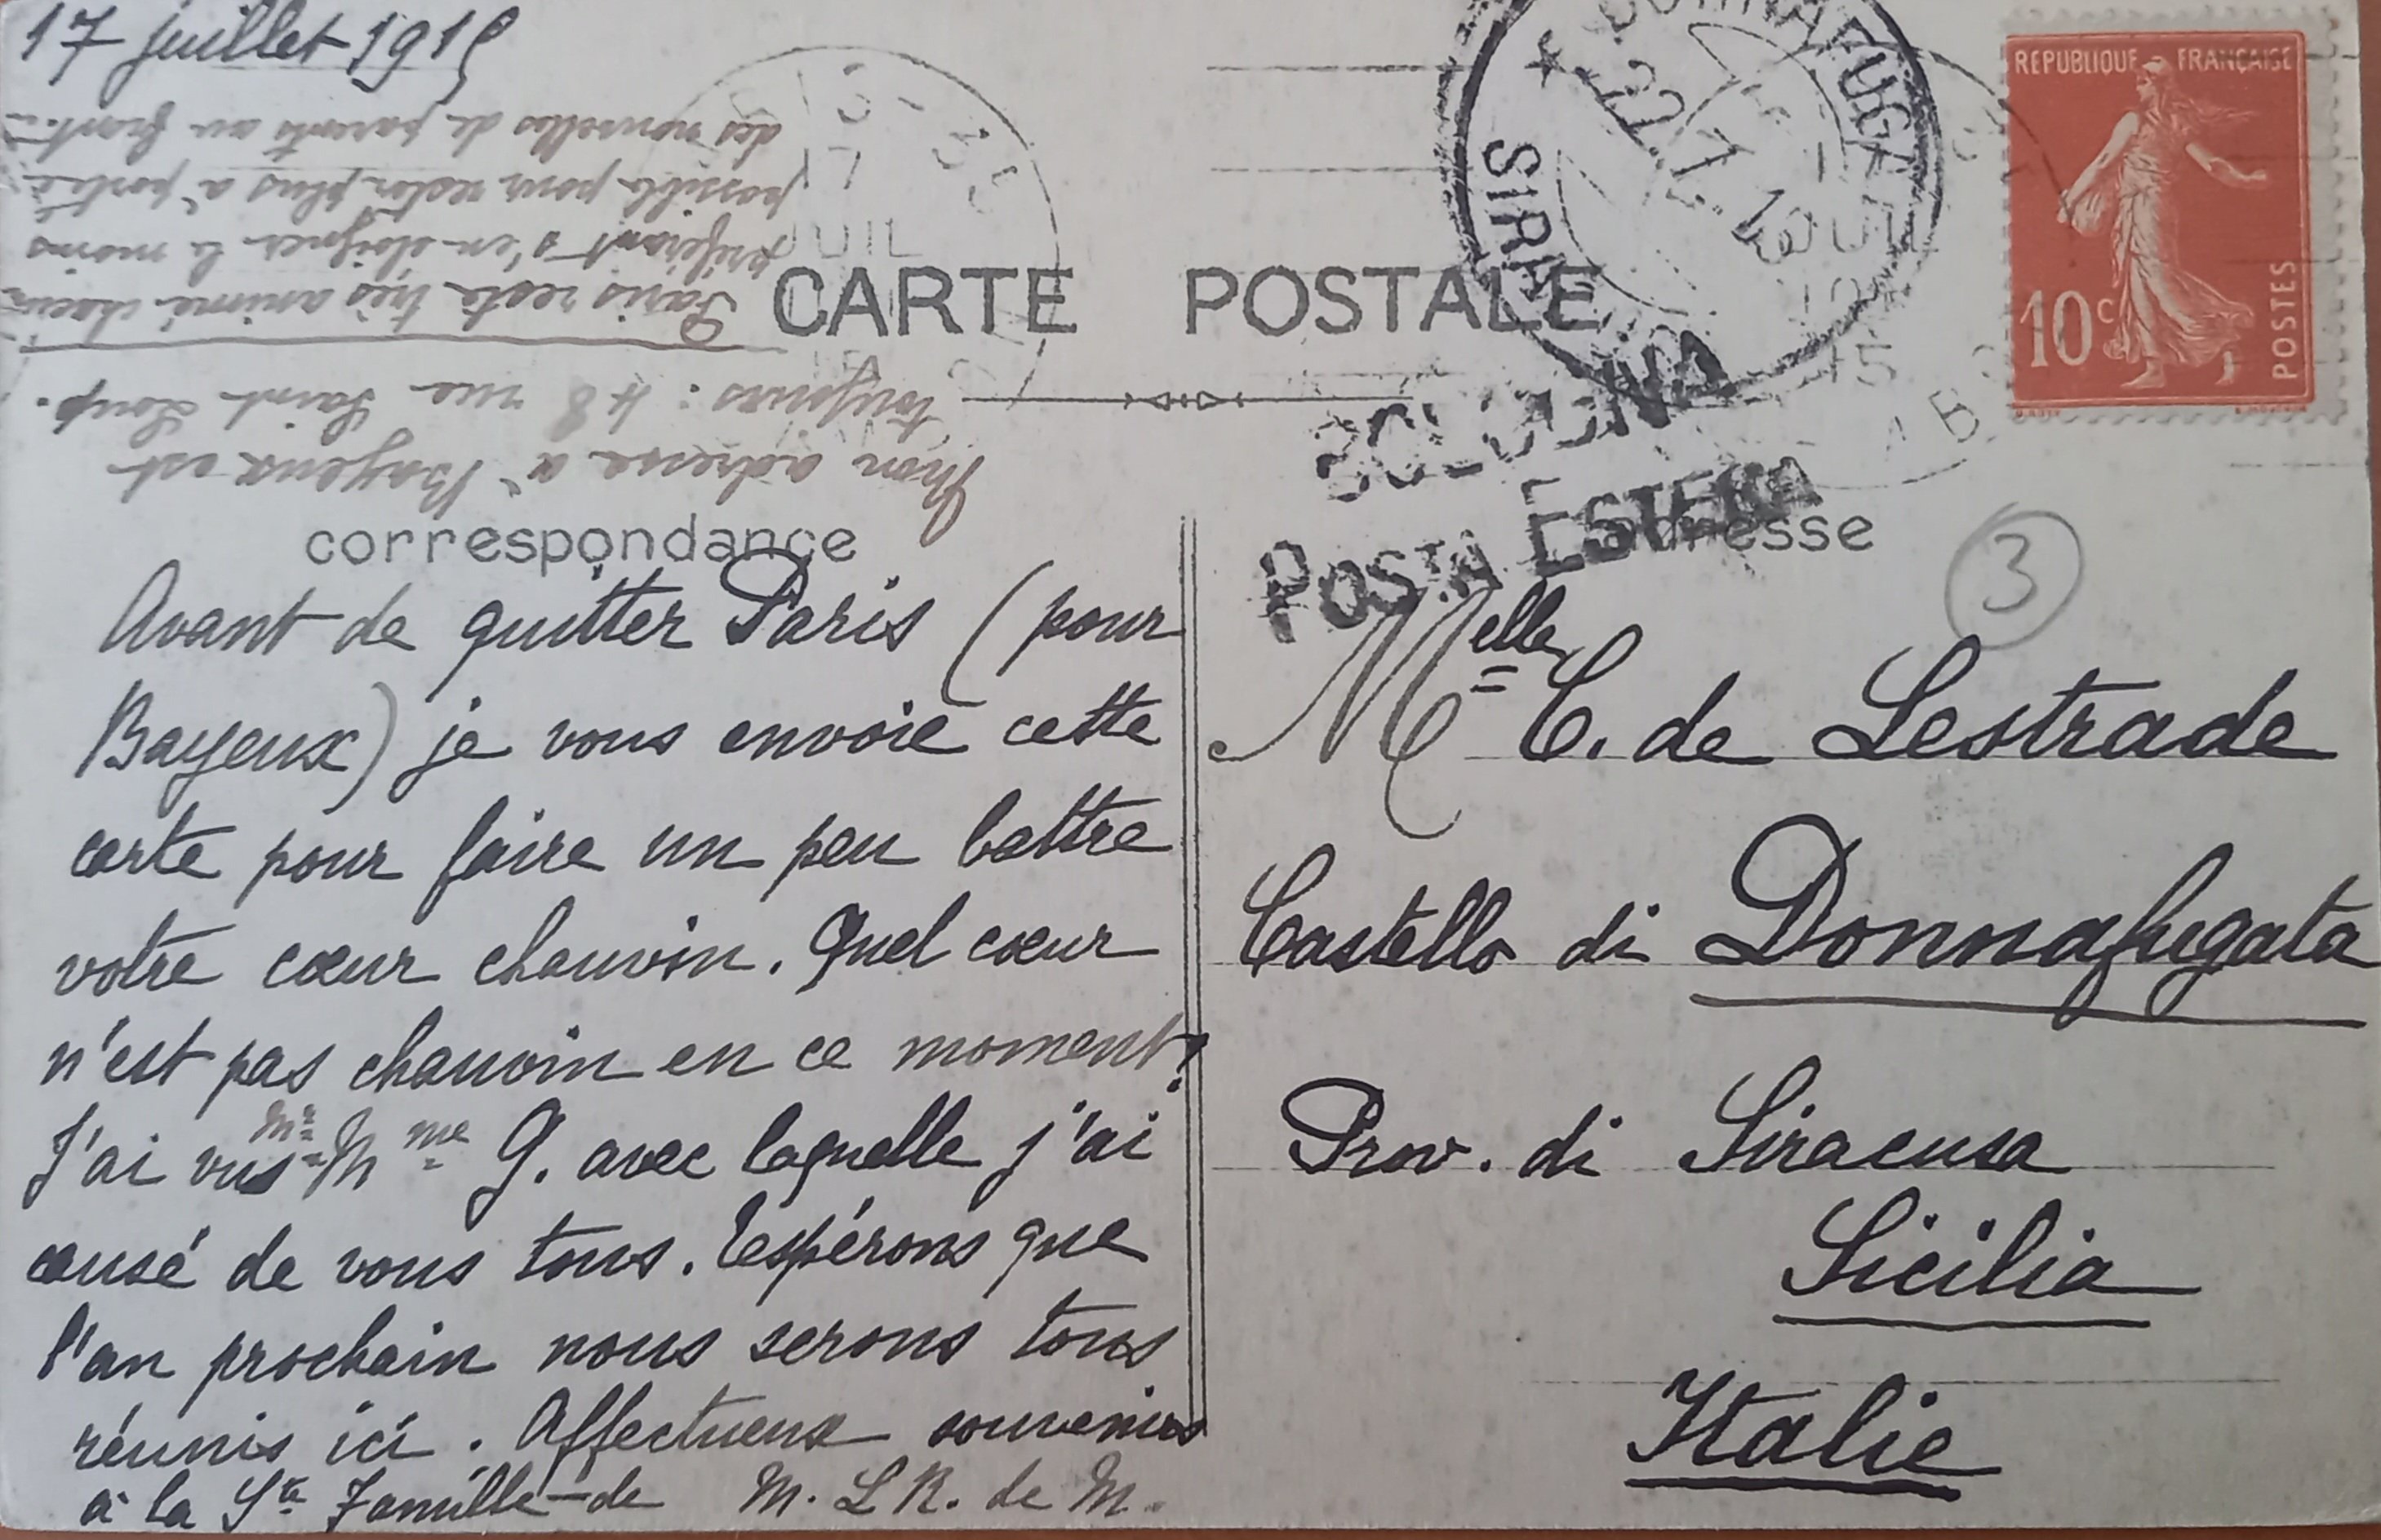 17 juillet 1915
Mon adresse à Bayeux est
toujours : 48 rue Saint Loup.
Paris reste très animé chacun
préférant s'en éloigner le moins
possible pour rester plus à portée
des nouvelles de parents au front.
CARTE POSTALE
correspondance
Avant de quitter Paris (pour
Bayeux) je vous envoie cette
carte pour faire un peu battre
votre cœur chauvin. Quel cœur
n'est pas chauvin en ce moment!
J'ai vus Mr Mme G. avec laquelle j'ai
causé de vous tous. Espérons que
l'an prochain nous serons tous
réunis ici. Affectueux souvenirs
à la Ste Famille de M. L R. de M.
REPUBLIQUE FRANÇAISE
10c
POSTES
DONNAFUGATA
22.7.15
17
JUIL
15
17
JUIL
BOLOGNA
POSTA ESTERA
adresse
3
Melle C. de Lestrade
Castello di Donnafugata
Prov. di Siracusa
Sicilia
Italie